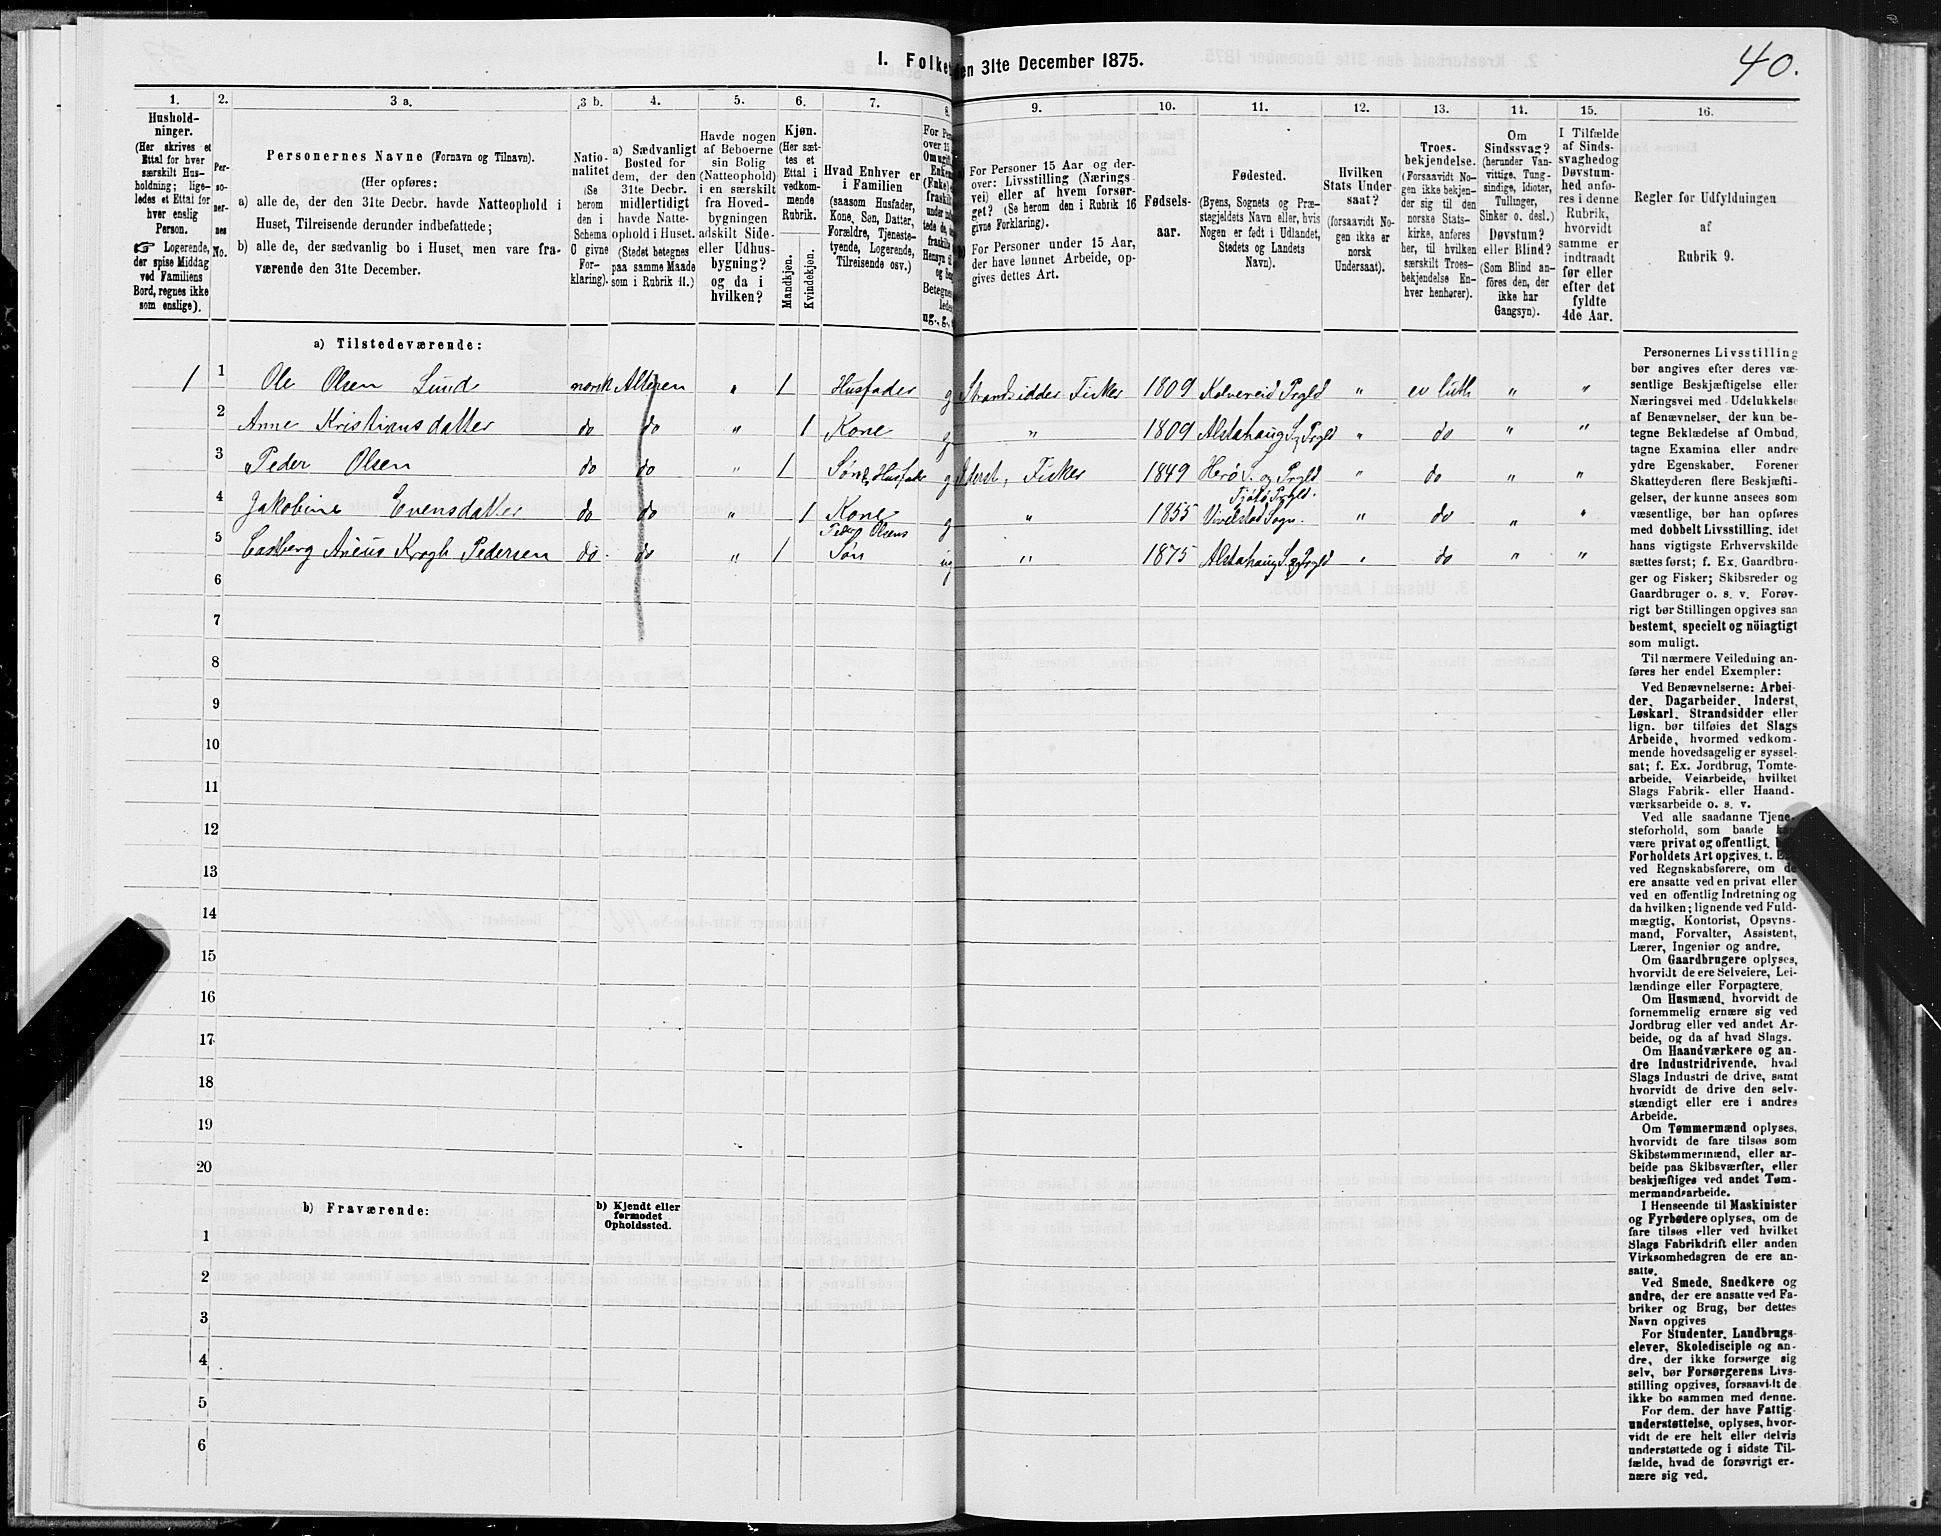 40.
I. Folke den 31te December 1875.
1. 2. 3 a. 3 b. 4. 5. 6. 7. 8. 9. 10. 11. 12. 13. 14. 15. 16.
Hushold-
ninger.
(Her skrives et
Ettal for hver
særskilt Hus-
holdning; lige-
ledes et Ettal for
hver enslig
Person.
☞ Logerende,
der spise Middag
ved Familiens
Bord, regnes ikke
som enslige).
Per-
so-
ner-
nes
No.
Personernes Navne (Fornavn og Tilnavn).
(Her opføres:
a) alle de, der den 31te Decbr. havde Natteophold i
Huset, Tilreisende derunder indbefattede;
b) alle de, der sædvanlig bo i Huset, men vare fra-
værende den 31te December.
Natio-
nalitet
(Se
herom
den i
Schema
C givne
For-
klaring).
a) Sædvanligt
Bosted for
dem, der den
31te Decbr.
midlertidigt
havde Natte-
ophold i Huset.
(Stedet betegnes
paa samme Maade
som i Rubrik 11.)
Havde nogen
af Beboerne
sin Bolig
(Natteophold)
i en særskilt
fra Hoved-
bygningen
adskilt Side-
eller Udhus-
bygning?
og da i
hvilken?
Kjøn.
(Her sæt-
tes et
Ettal i
vedkom-
mende
Rubrik.
Mandkjøn.
Kvindekjøn.
Hvad Enhver er
i Familien
(saasom Husfader,
Kone, Søn, Datter,
Forældre, Tjeneste-
tyende, Logerende,
Tilreisende osv.)
For Pe
over 15
Om ugift
Enke
(Enke)
fraskilt
ug., g.,
For Personer 15 Aar og der-
over: Livsstilling (Nærings
vei) eller af hvem forsør-
get? (Se herom den i Rubrik 16
givne Forklaring).
b) For Personer under 15 Aar,
der have lønnet Arbeide, op-
gives dettes Art.
Fødsels-
aar.
Fødested.
(Byens, Sognets og Præ-
stegjeldets Navn eller, hvis
Nogen er født i Udlandet,
Stedets og Landets
Navn).
Hvilken
Stats Under-
saat?
(forsaavidt No-
gen ikke er
norsk
Undersaat).
Troes-
bekjendelse.
(Forsaavidt No-
gen ikke bekjen-
der sig til den
norske Stats-
kirke, anføres
her, til hvilken
særskilt Troes-
bekjendelse En-
hver henhører).
Om
Sindssvag?
(herunder Van-
vittige, Tung-
sindige, Idioter,
Tullinger,
Sinker o. desl.)
Døvstum?
eller Blind?
(Som Blind an-
føres den, der
ikke har
Gangsyn).
I Tilfælde
af Sinds-
svaghedog
Døvstum-
hed anfø-
res i denne
Rubrik,
hvorvidt
samme er
indtraadt
før eller
efter det
fyldte
4de Aar.
Regler for Udfyldningen
af
Rubrik 9.
a) Tilstedeværende:
1 1 Ole Olsen Lund norsk Alteren " 1 Husfader g Strandsidder Fisker 1809 Kolvereid Prgld " ev luth " "
2 Anne Kristiansdatter do do " 1 Kone g " 1809 Alstahaug S. Prgld " do " "
3 Peder Olsen do do " 1 Søn, Husfader g Inderst, Fisker 1849 Herø S. og Prgld " do " "
4 Jakobine Evensdatter do do " 1 Kone Peder Olsens g " 1855 Tjøtø Prgld. Vivelstad Sogn. " do " "
5 Castberg Areus Krogh Pedersen do do " 1 Søn ug " 1875 Alstahaug S. Prgld " do " "
6
7
8
9
10
11
12
13
14
15
16
17
18
19
20
b) Fraværende:
b) Kjendt eller
formodet
Opholdssted.
1
2
3
4
5
6
Personernes Livsstilling
bør angives efter deres væ-
sentlige Beskjæftigelse eller
Næringsvei med Udelukkelse
af Benævnelser, der kun be-
tegne Beklædelse af Ombud,
tagne Examina eller andre
ydre Egenskaber. Forener
Skatteyderen flere Beskjæfti-
gelser, der kunne ansees som
væsentlige, bør han opføres
med dobbelt Livsstilling, idet
hans vigtigste Erhvervskilde
sættes først; f. Ex. Gaardbru-
ger og Fisker; Skibsreder og
Gaardbruger o. s. v. Forøv-
rigt bør Stillingen opgives saa
bestemt, specielt og nöiagtigt
som muligt.
Til nærmere Veiledning an-
føres her endel Exempler:
Ved Benævnelserne: Arbei-
der, Dagarbeider, Inderst,
Løskarl, Strandsidder eller
lign. bør tilføies det Slags
Arbeide, hvormed vedkom-
mende hovedsagelig er syssel-
sat; f. Ex. Jordbrug, Tomte-
arbeide, Veiarbeide, hvilket
Slags Fabrik- eller Haand-
værksarbeide o. s. v.
Ved alle saadanne Tjene-
steforhold, som baade kan
være privat og offentligt,
Forholdets Art opgives, t. Ex.
ved Regnskabsførere, om de
ere ansatte ved en privat eller
ved en offentlig Indretning og
da hvilken; lignende ved Fuld-
mægtig, Kontorist, Opsyns-
mand, Forvalter, Assistent,
Lærer, Ingeniør og andre.
Om Gaardbrugere oplyses,
hvorvidt de ere Selveiere, Lei-
lændinge eller Forpagtere.
Om Husmænd, hvorvidt de
fornemmelig ernære sig ved
Jordbrug eller ved andet Ar-
beide, og da af hvad Slags.
Om Haandværkere og an-
dre Industridrivende, hvad
Slags Industri de drive, samt
hvorvidt de drive den selv-
stændigt eller ere i andres
Arbeide.
Om Tømmermænd oplyses,
hvorvidt de fare tilsøs som
Skibstømmermænd, eller ar-
beide paa Skibsværfter, eller
beskjæftiges ved andet Tøm-
mermandsarbeide.
I Henseende til Maskinister
og Fyrbødere oplyses, om de
fare tilsøs eller ved hvilket
Slags Fabrikdrift eller anden
Virksomhedsgren de ere an-
satte.
Ved Smede, Snedkere og
andre, der ere ansatte ved Fa-
briker og Brug, bør dettes
Navn opgives
For Studenter, Landbrugs-
elever, Skoledisciple og an-
dre, der ikke forsørge sig
selv, bør Forsørgerens Livs-
stilling opgives, forsaavidt de
ikke bo sammen med denne.
For dem, der have Fattig-
understøttelse, oplyses, hvor-
vidt de ere helt eller delvis
understøttede og i sidste Til-
fælde, hvad de forøvrigt er-
nære sig ved.